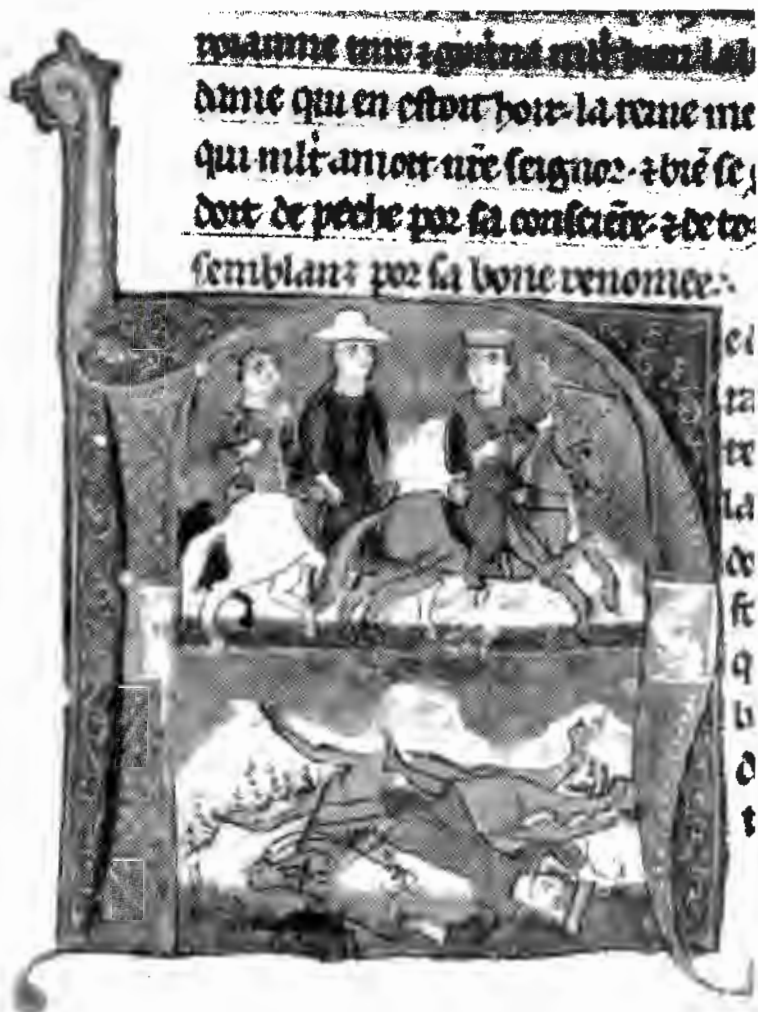 roiaume tint ⁊ governa mlt bien la
dame qui en estoit hoir· la reine me
qui mlt amoit nr̃e seignor· ⁊ biẽ se g
doit de peche por sa consciẽce· ⁊ de to
semblanz por sa bone renomee·
ci
ra
re
la
de
fe
q
b
d
t